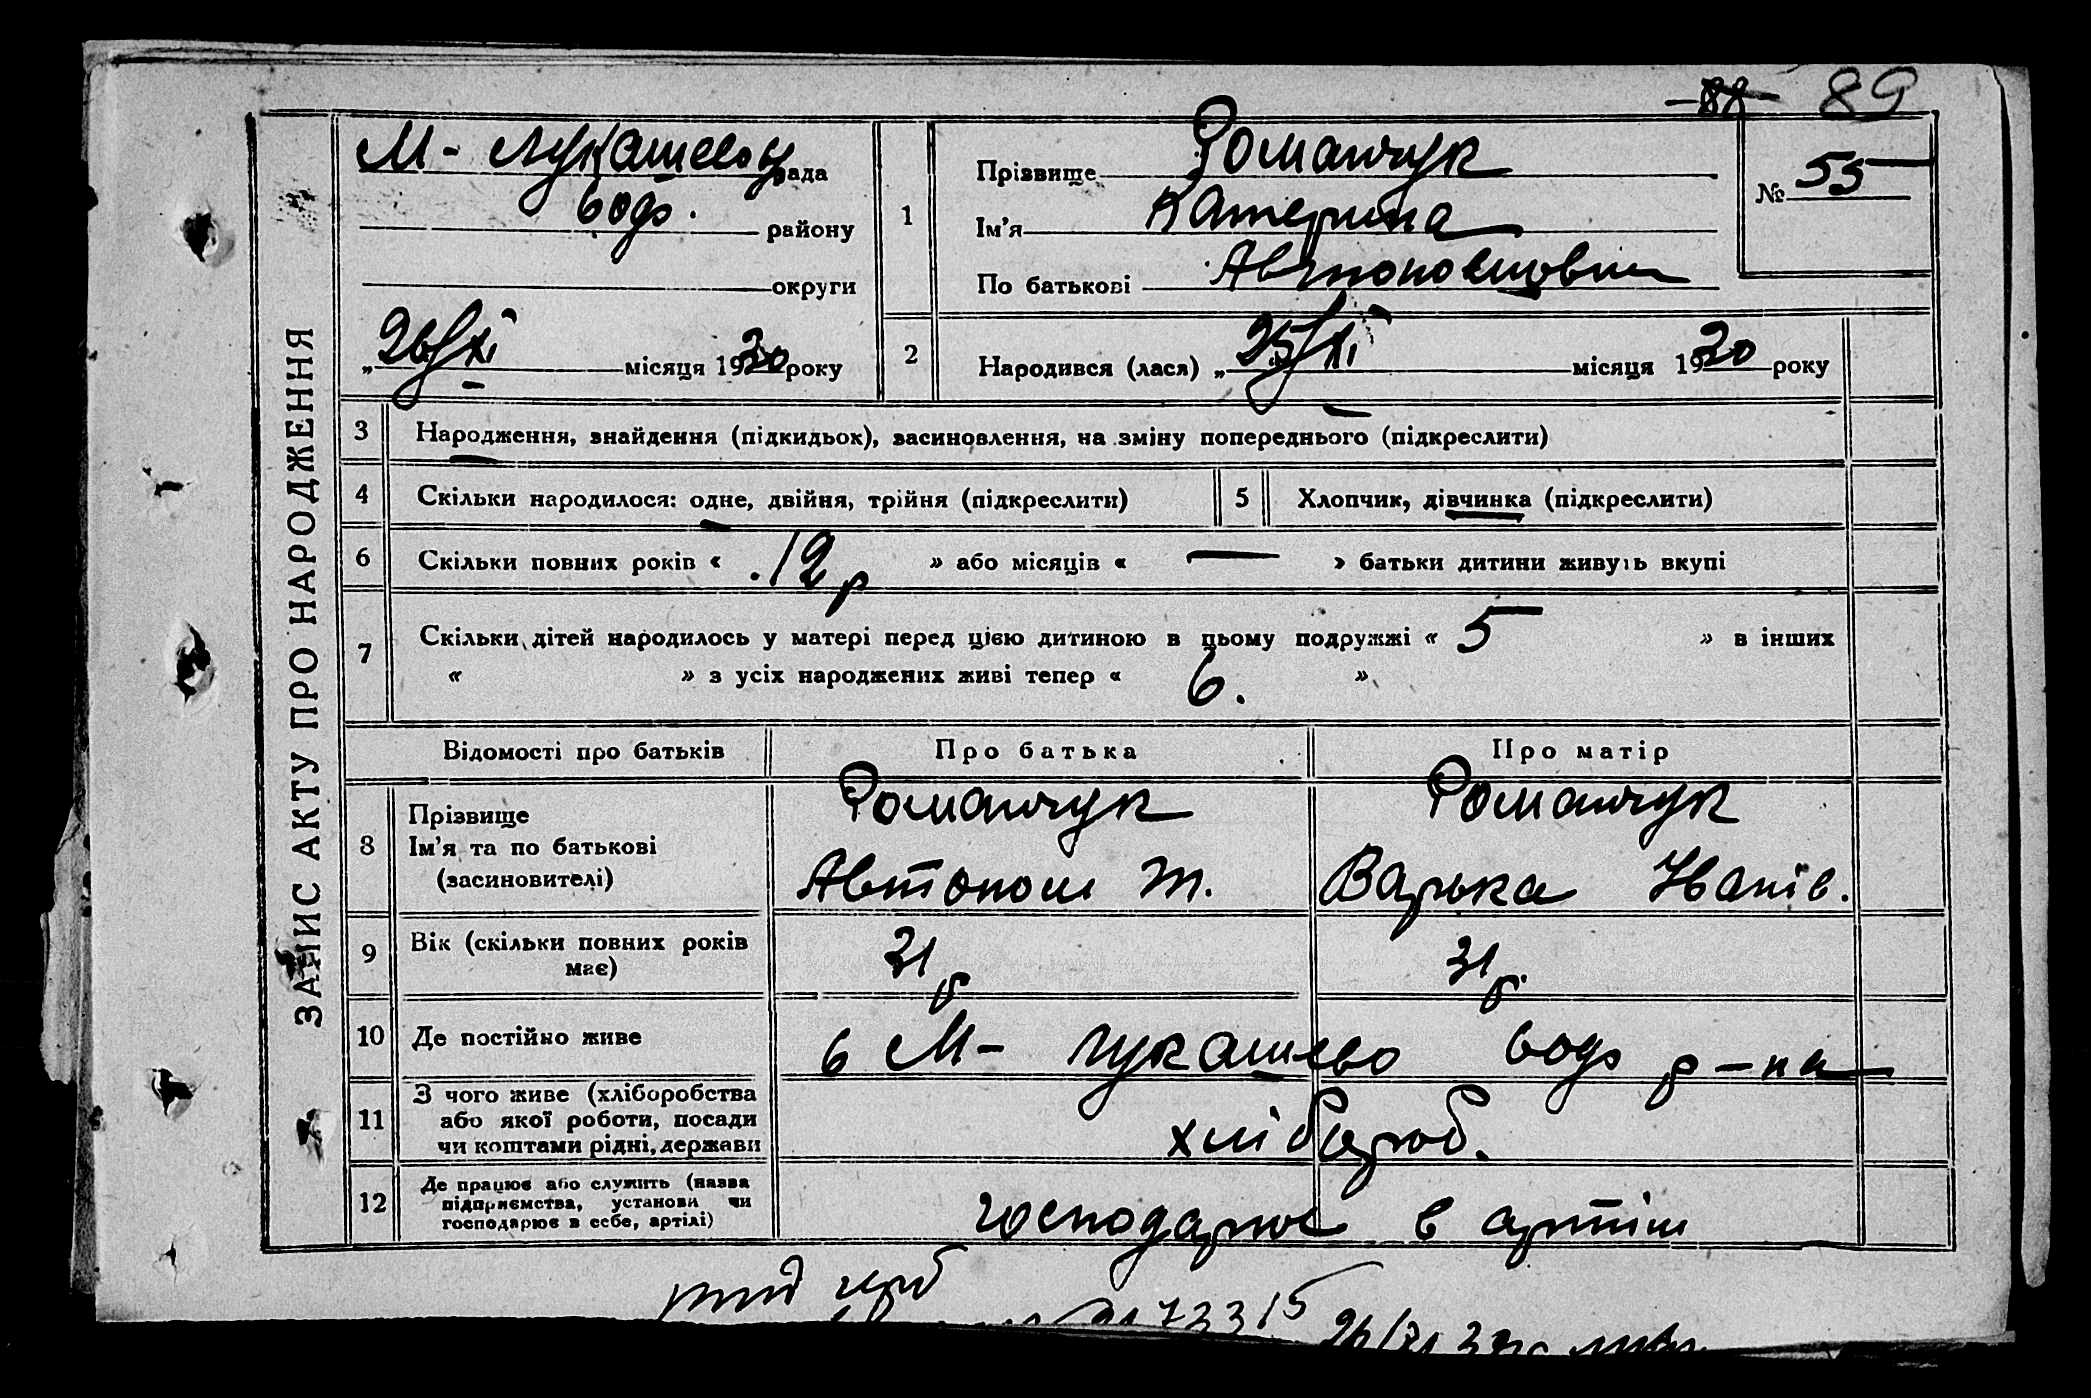 88 89
ЗАПИС АКТУ ПРО НАРОДЖЕННЯ
М- Лукашевоц рада
вод. району
округи
„26/XI місяця 1930 року
1
Прізвище Романчук
Ім'я Катерина
По батькові Автономовни
№ 55
2
Народився (лася) „25/XI місяця 1930 року
3 Народження, знайдення (підкидьок), засиновлення, на зміну попереднього (підкреслити)
4 Скільки народилося: одне, двійня, трійня (підкреслити) 5 Хлопчик, дівчинка (підкреслити)
6 Скільки повних років « 12 р » або місяців « — » батьки дитини живуть вкупі
7 Скільки дітей народилось у матері перед цією дитиною в цьому подружжі « 5 » в інших
« » з усіх народжених живі тепер « 6. »
Відомості про батьків Про батька Про матір
8 Прізвище Романчук Романчук
Ім'я та по батькові
(засиновителі) Автоном Т. Варька Иванів.
9 Вік (скільки повних років 31 р 31 р.
має)
10 Де постійно живе в М- Лукашево вод р-на
11 З чого живе (хліборобства
або якої роботи, посади хлібороб.
чи коштами рідні, держави
12 Де працює або служить (назва
підприємства, установи чи господарює в артіли
господарює в себе, артілі)
73315